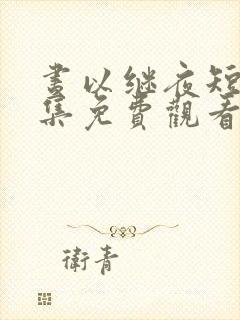 畫以继夜短
集免費觀看
衛青